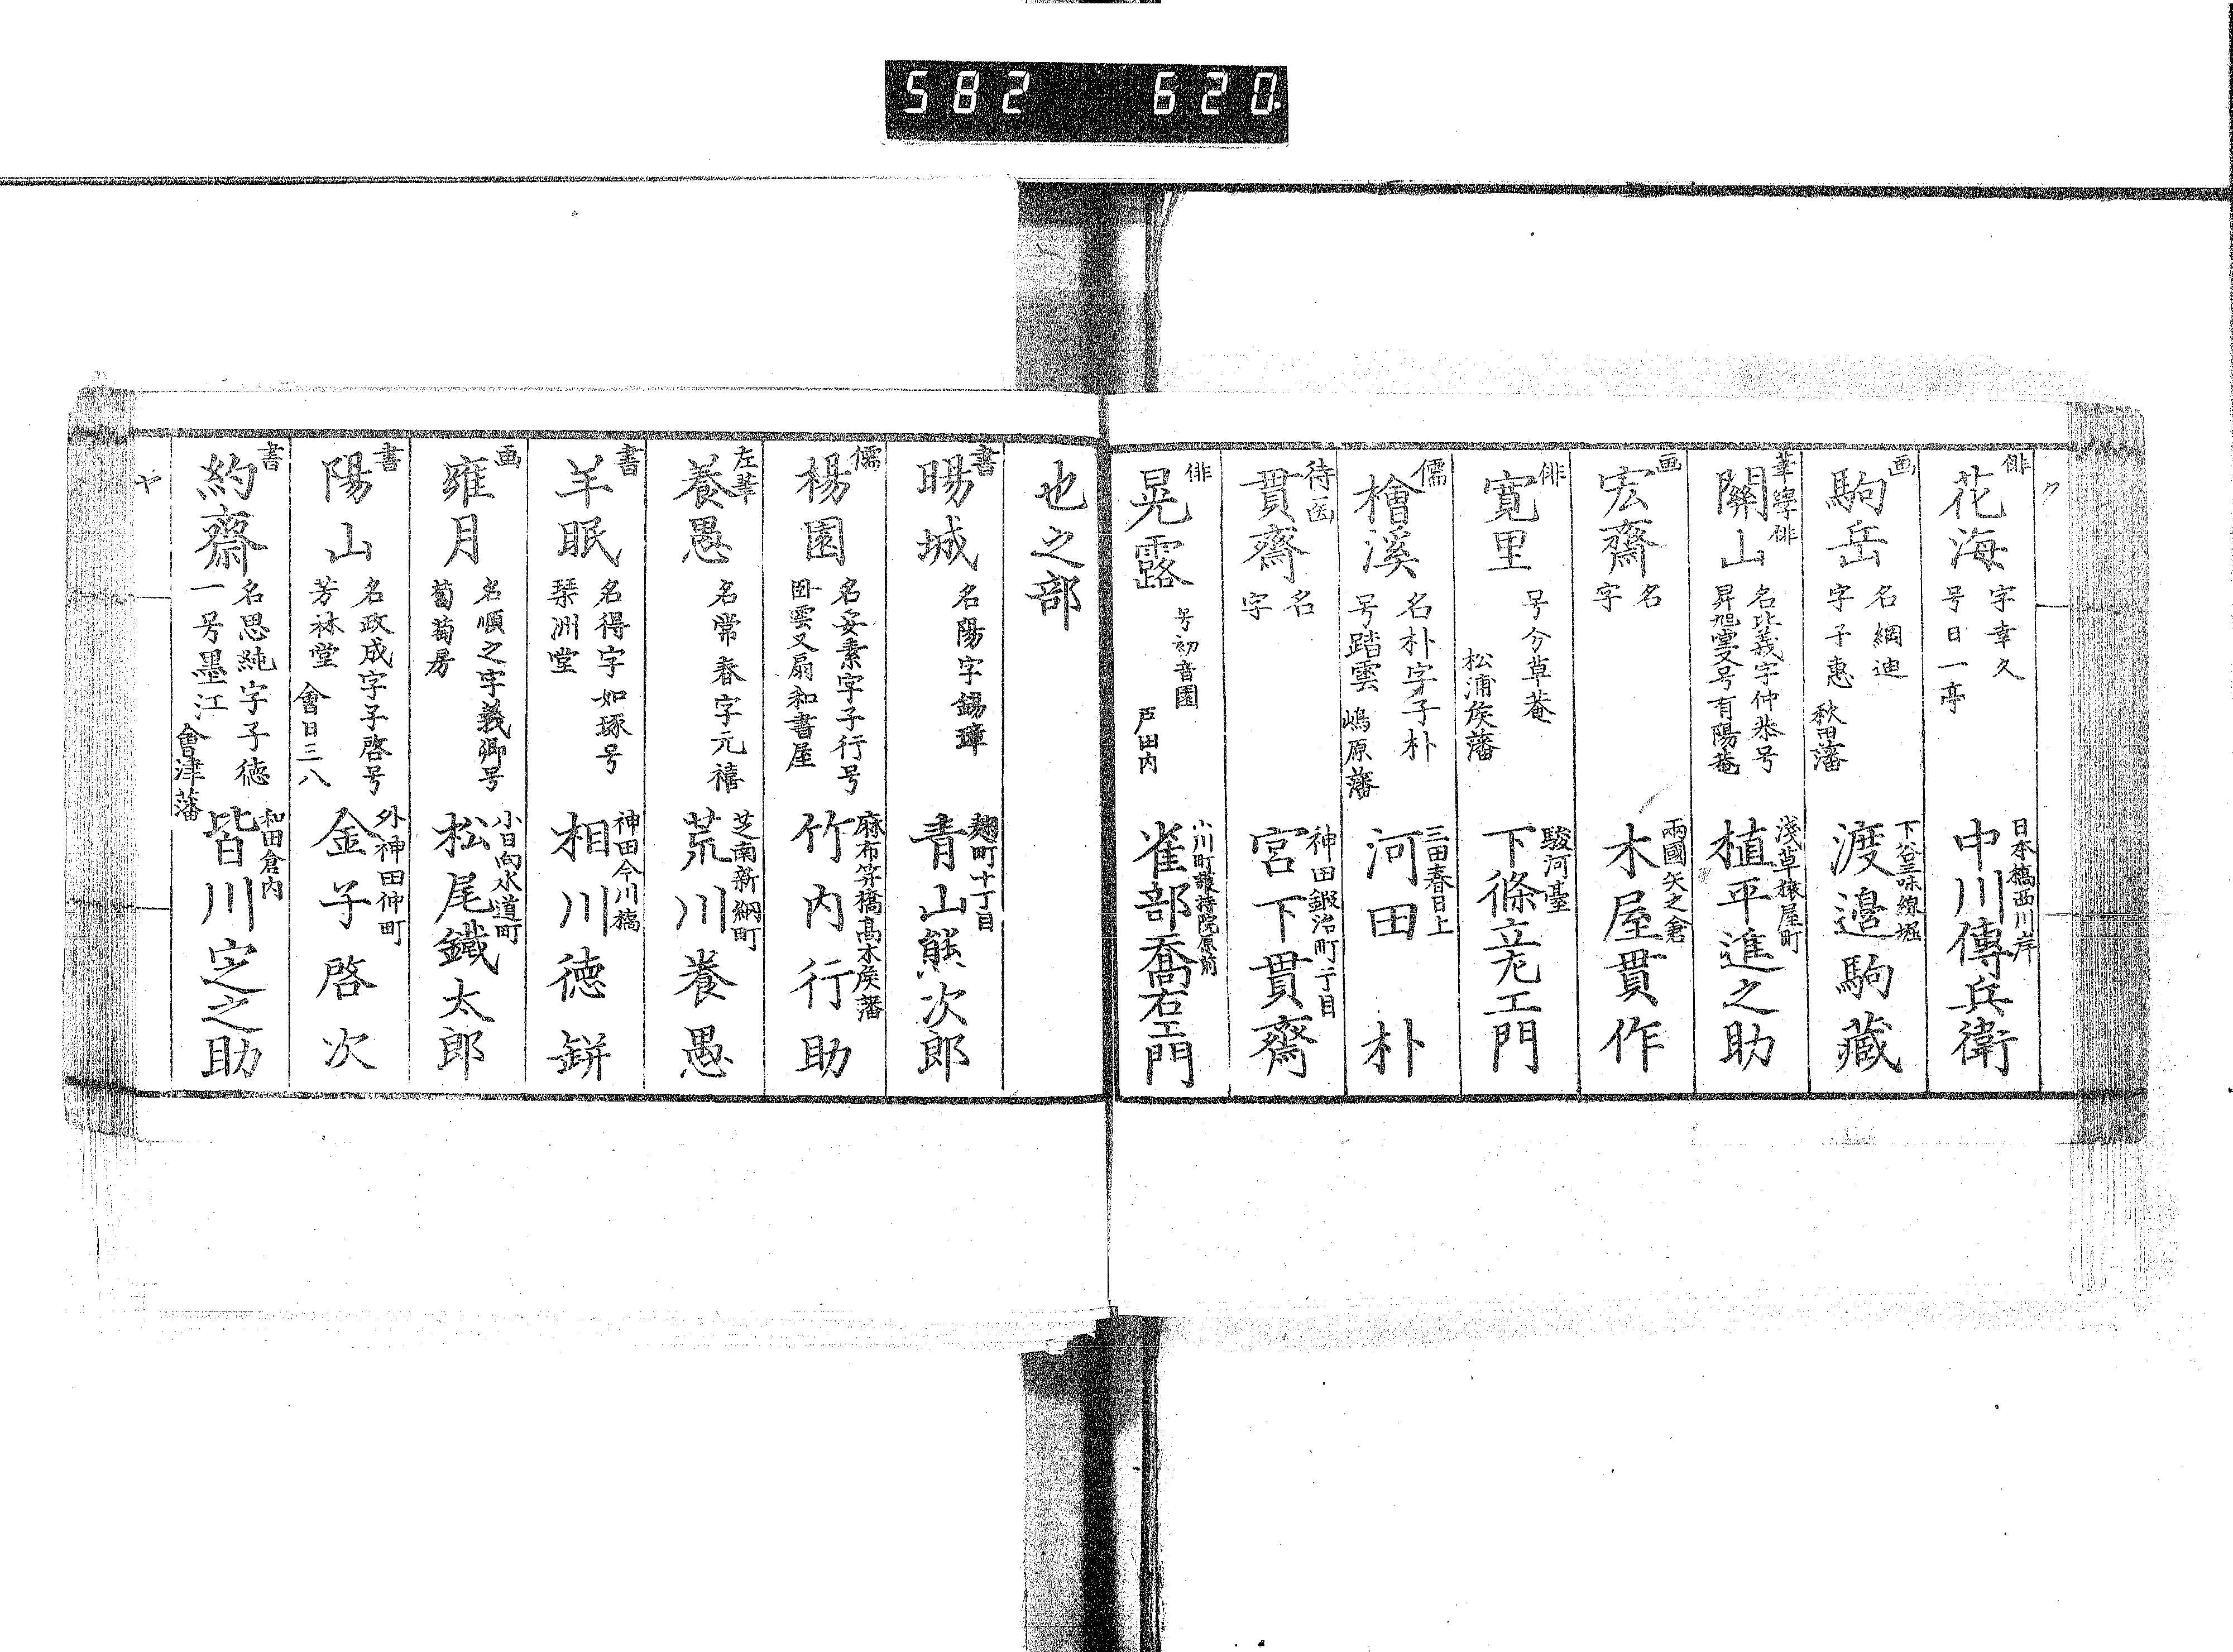 582 620.
ク
俳 花海 字幸久 号日一亭 日本橋西川岸 中川傳兵衛
画 駒岳 名綱迪 字子惠 秋田藩 下谷三味線堀 渡邉駒藏
筆學俳 關山 名比義字仲恭号 昇旭堂又号有陽菴 淺草猿屋町 植平進之助
画 宏齋 名 字 兩國矢之倉 木屋貫作
俳 寛里 号今草菴 松浦矦藩 駿河臺 下條立左エ門
儒 檜溪 名朴字子朴 号踏雲 嶋原藩 三田春日上 河田朴
待画 貫齋 名 字 神田鍛冶町一丁目 宮下貫齋
俳 晃露 号初音園 戸田内 小川町護持院原前 雀部喬右エ門
也之部
書 暘城 名陽字錫璋 麹町十丁目 青山熊次郎
儒 楊園 名妥素字子行号 卧雲又扇和書屋 麻布笄橋高木矦藩 竹内行助
左筆 養愚 名常春字元禧 芝南新網町 荒川養愚
書 羊眠 名得字如琢号 琹洲堂 神田今川橋 相川徳缾
画 雍月 名順之字義卿号 蔔萄房 小日向水道町 松尾鐵太郎
書 陽山 名政成字子啓号 芳林堂 會日三八 外神田仲町 金子啓次
書 約齋 名思純字子徳 一号墨江 會津藩 和田倉内 皆川定之助
ヤ